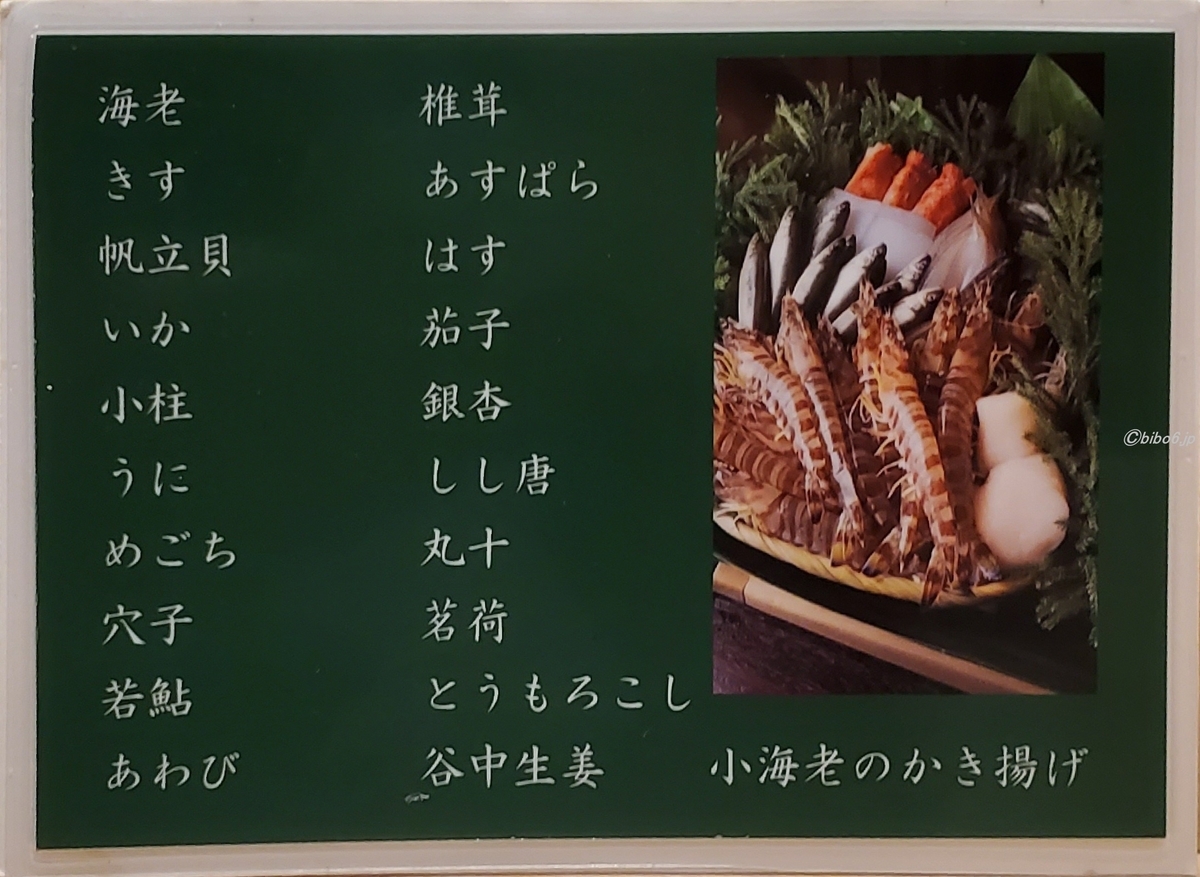 海老
きす
帆立貝
いか
小柱
うに
めごち
穴子
若鮎
あわび
椎茸
あすぱら
はす
茄子
銀杏
しし唐
丸十
茗荷
とうもろこし
谷中生姜
小海老のかき揚げ
©bibo6.jp